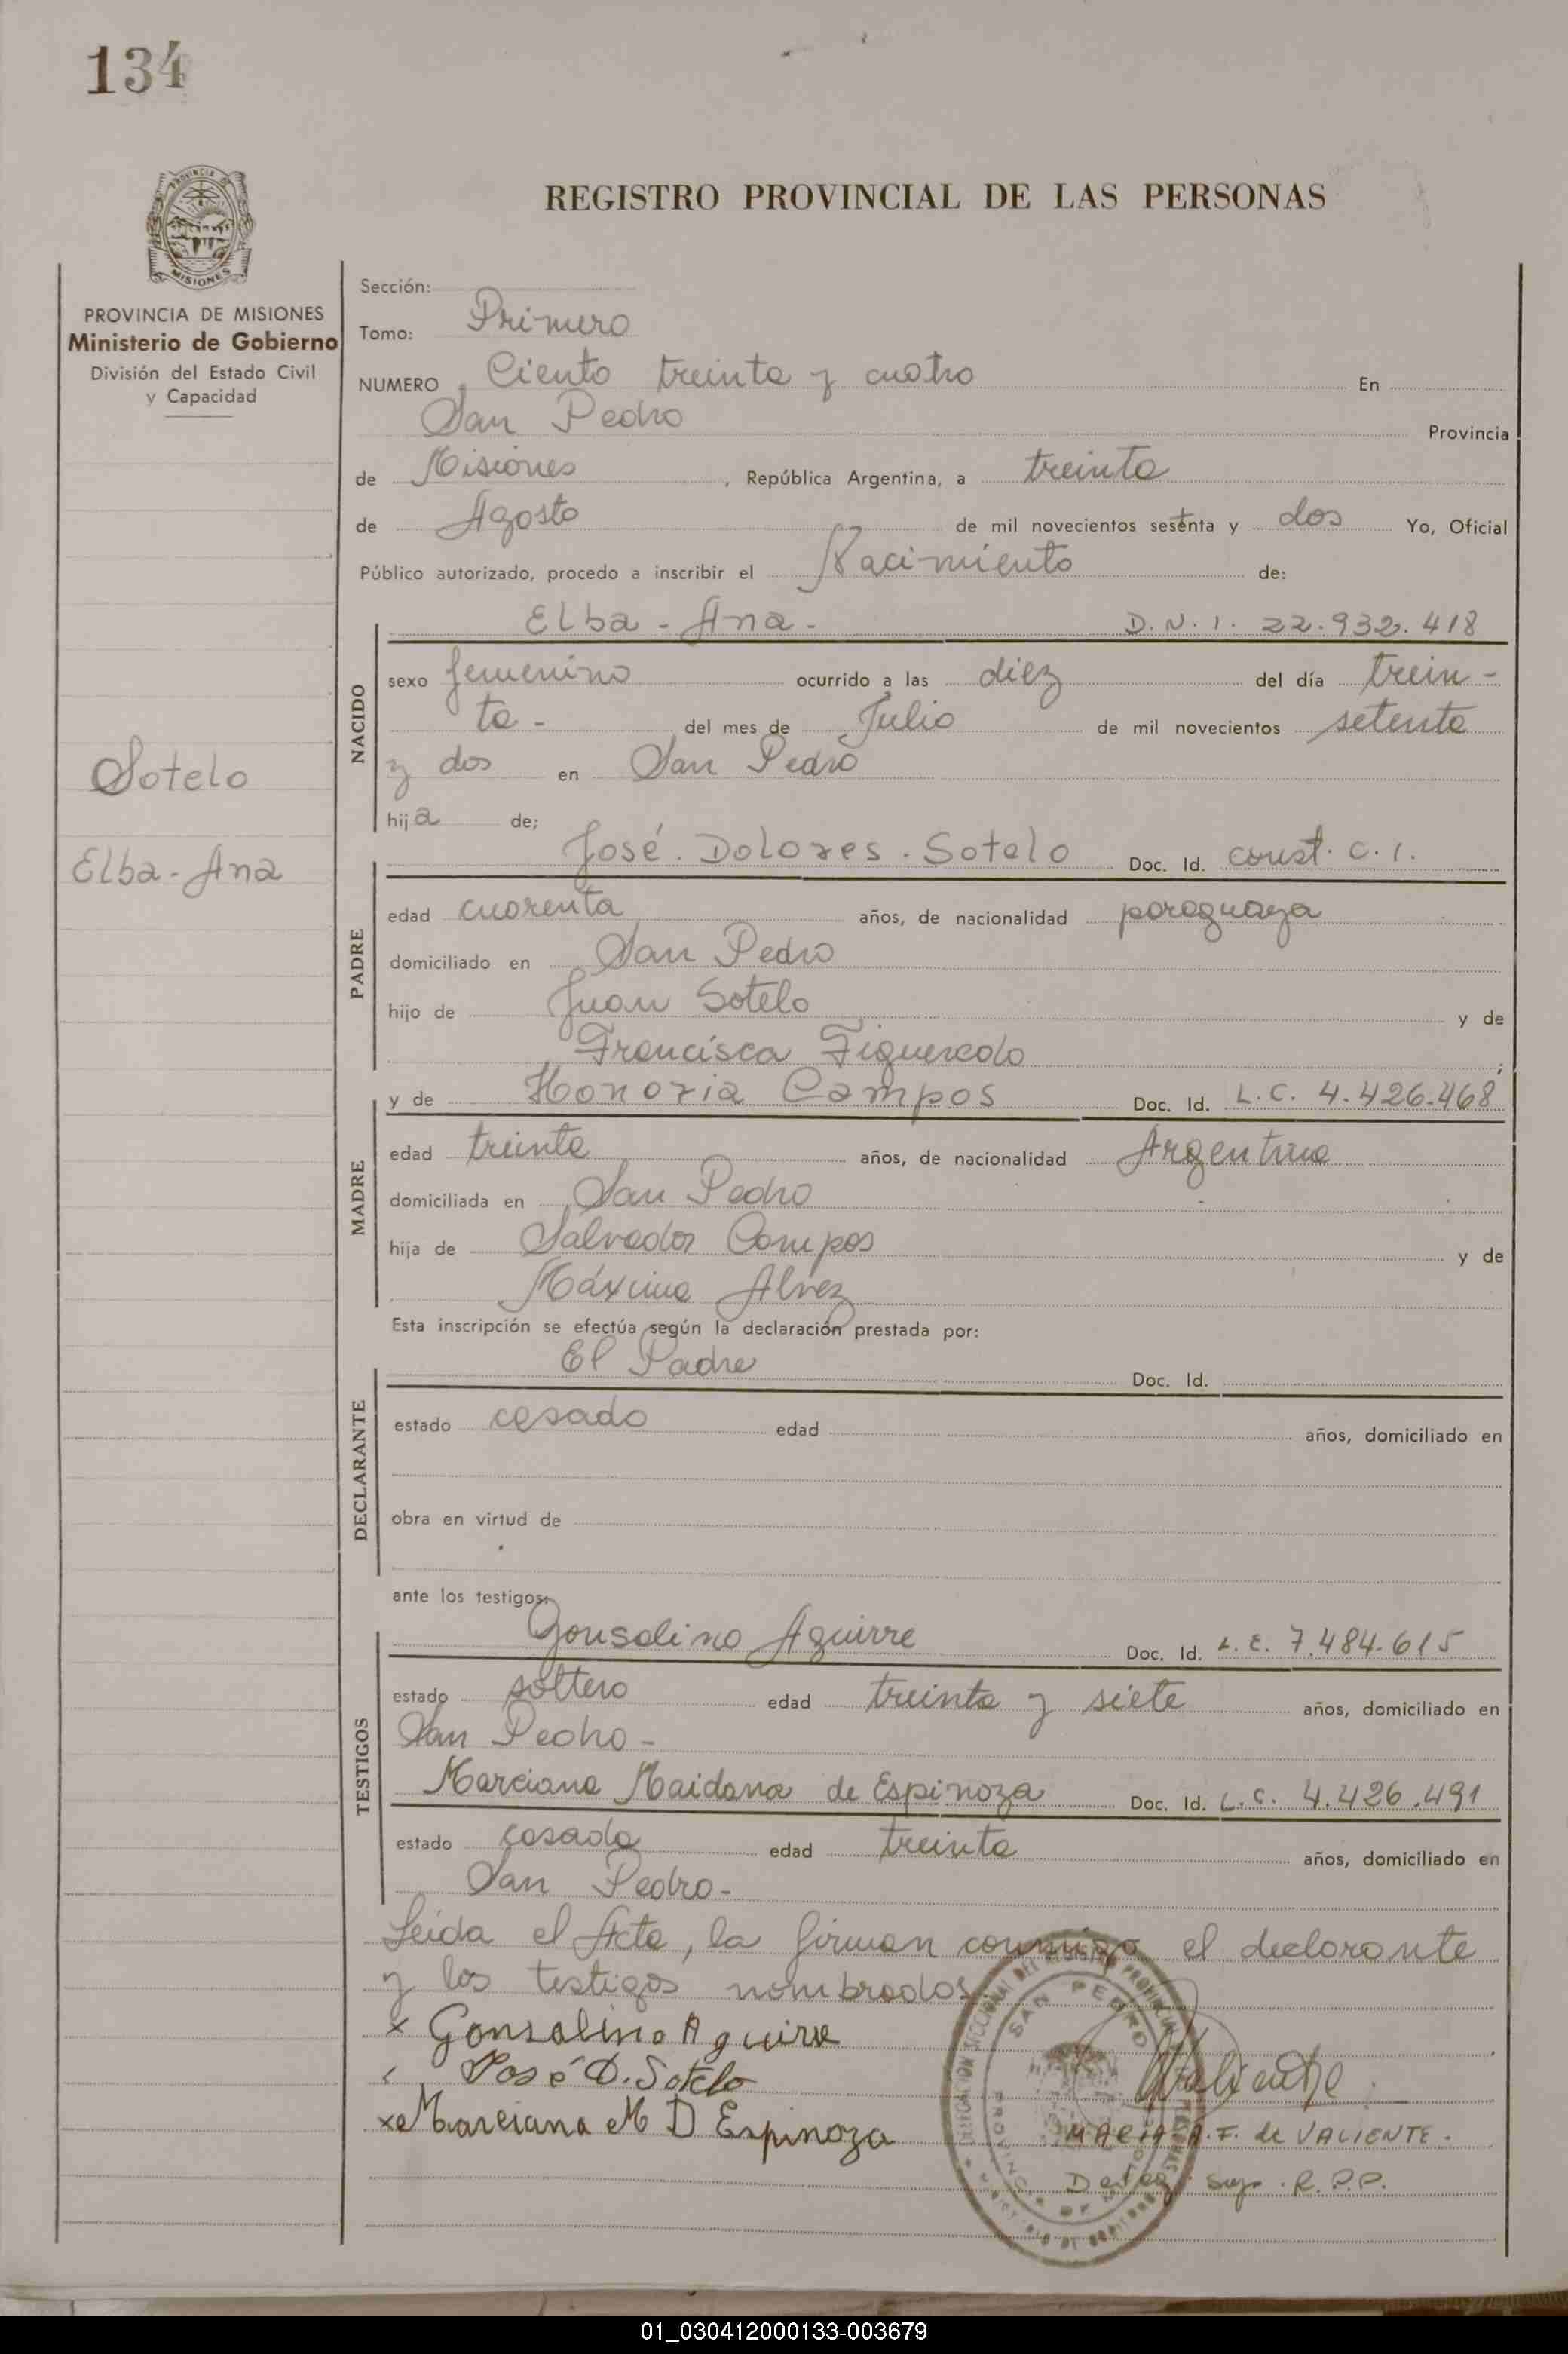 134
REGISTRO PROVINCIAL DE LAS PERSONAS
PROVINCIA DE MISIONES
Ministerio de Gobierno
División del Estado Civil
y Capacidad
Sotelo
Elba-Ana
Sección:
Tomo: Primero
NUMERO Ciento treinta y cuatro En
San Pedro Provincia
de Misiones, República Argentina, a treinta
de Agosto de mil novecientos setenta y dos Yo, Oficial
Público autorizado, procedo a inscribir el Nacimiento de:
NACIDO
Elba - Ana - D.N.I. 22.932.418
sexo femenino ocurrido a las diez del día trein-
ta - del mes de Julio de mil novecientos setenta
y dos en San Pedro
hija de;
PADRE
José. Dolores. Sotelo Doc. Id. const. C.I.
edad cuarenta años, de nacionalidad paraguaya
domiciliado en San Pedro
hijo de Juan Sotelo y de
Francisca Figueredo;
MADRE
y de Honoria Campos Doc. Id. L.C. 4.426.468
edad treinta años, de nacionalidad Argentina
domiciliada en San Pedro
hija de Salvador Campos y de
Máxima Alvez
Esta inscripción se efectúa según la declaración prestada por:
DECLARANTE
El Padre Doc. Id.
estado casado edad años, domiciliado en
obra en virtud de
ante los testigos:
TESTIGOS
Gonsalino Aguirre Doc. Id. L.E. 7.484.615
estado soltero edad treinta y siete años, domiciliado en
San Pedro -
Marciana Maidana de Espinoza Doc. Id. L.C. 4.426.491
estado casada edad treinta años, domiciliado en
San Pedro -
Leida el Acta, la firman conmigo el declarante
y los testigos nombrados
x Gonsalino Aguirre
José D. Sotelo
x Marciana M D Espinoza
Valiente
MARIA A.F. de VALIENTE.
Deleg. Sup. R.P.P.
SAN PEDRO
01_030412000133-003679